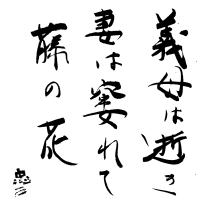 義母は逝き
妻は窶れて
藤の花
忠三